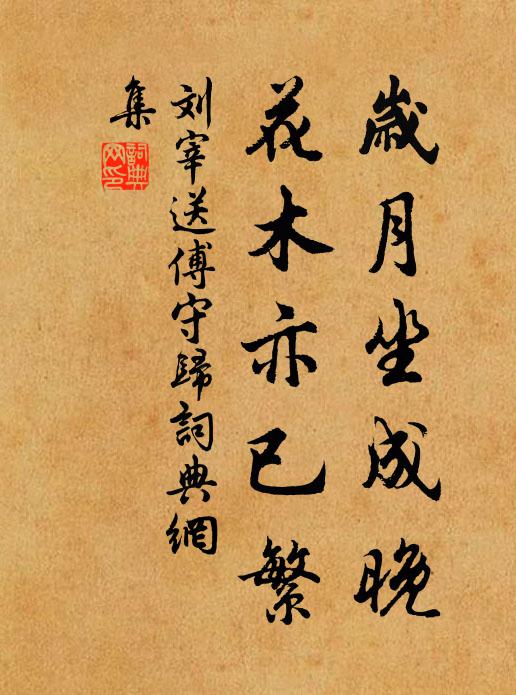 歲月坐成晚
花木亦已繁
刘宰送傅守歸詞典網
集
詞典網印